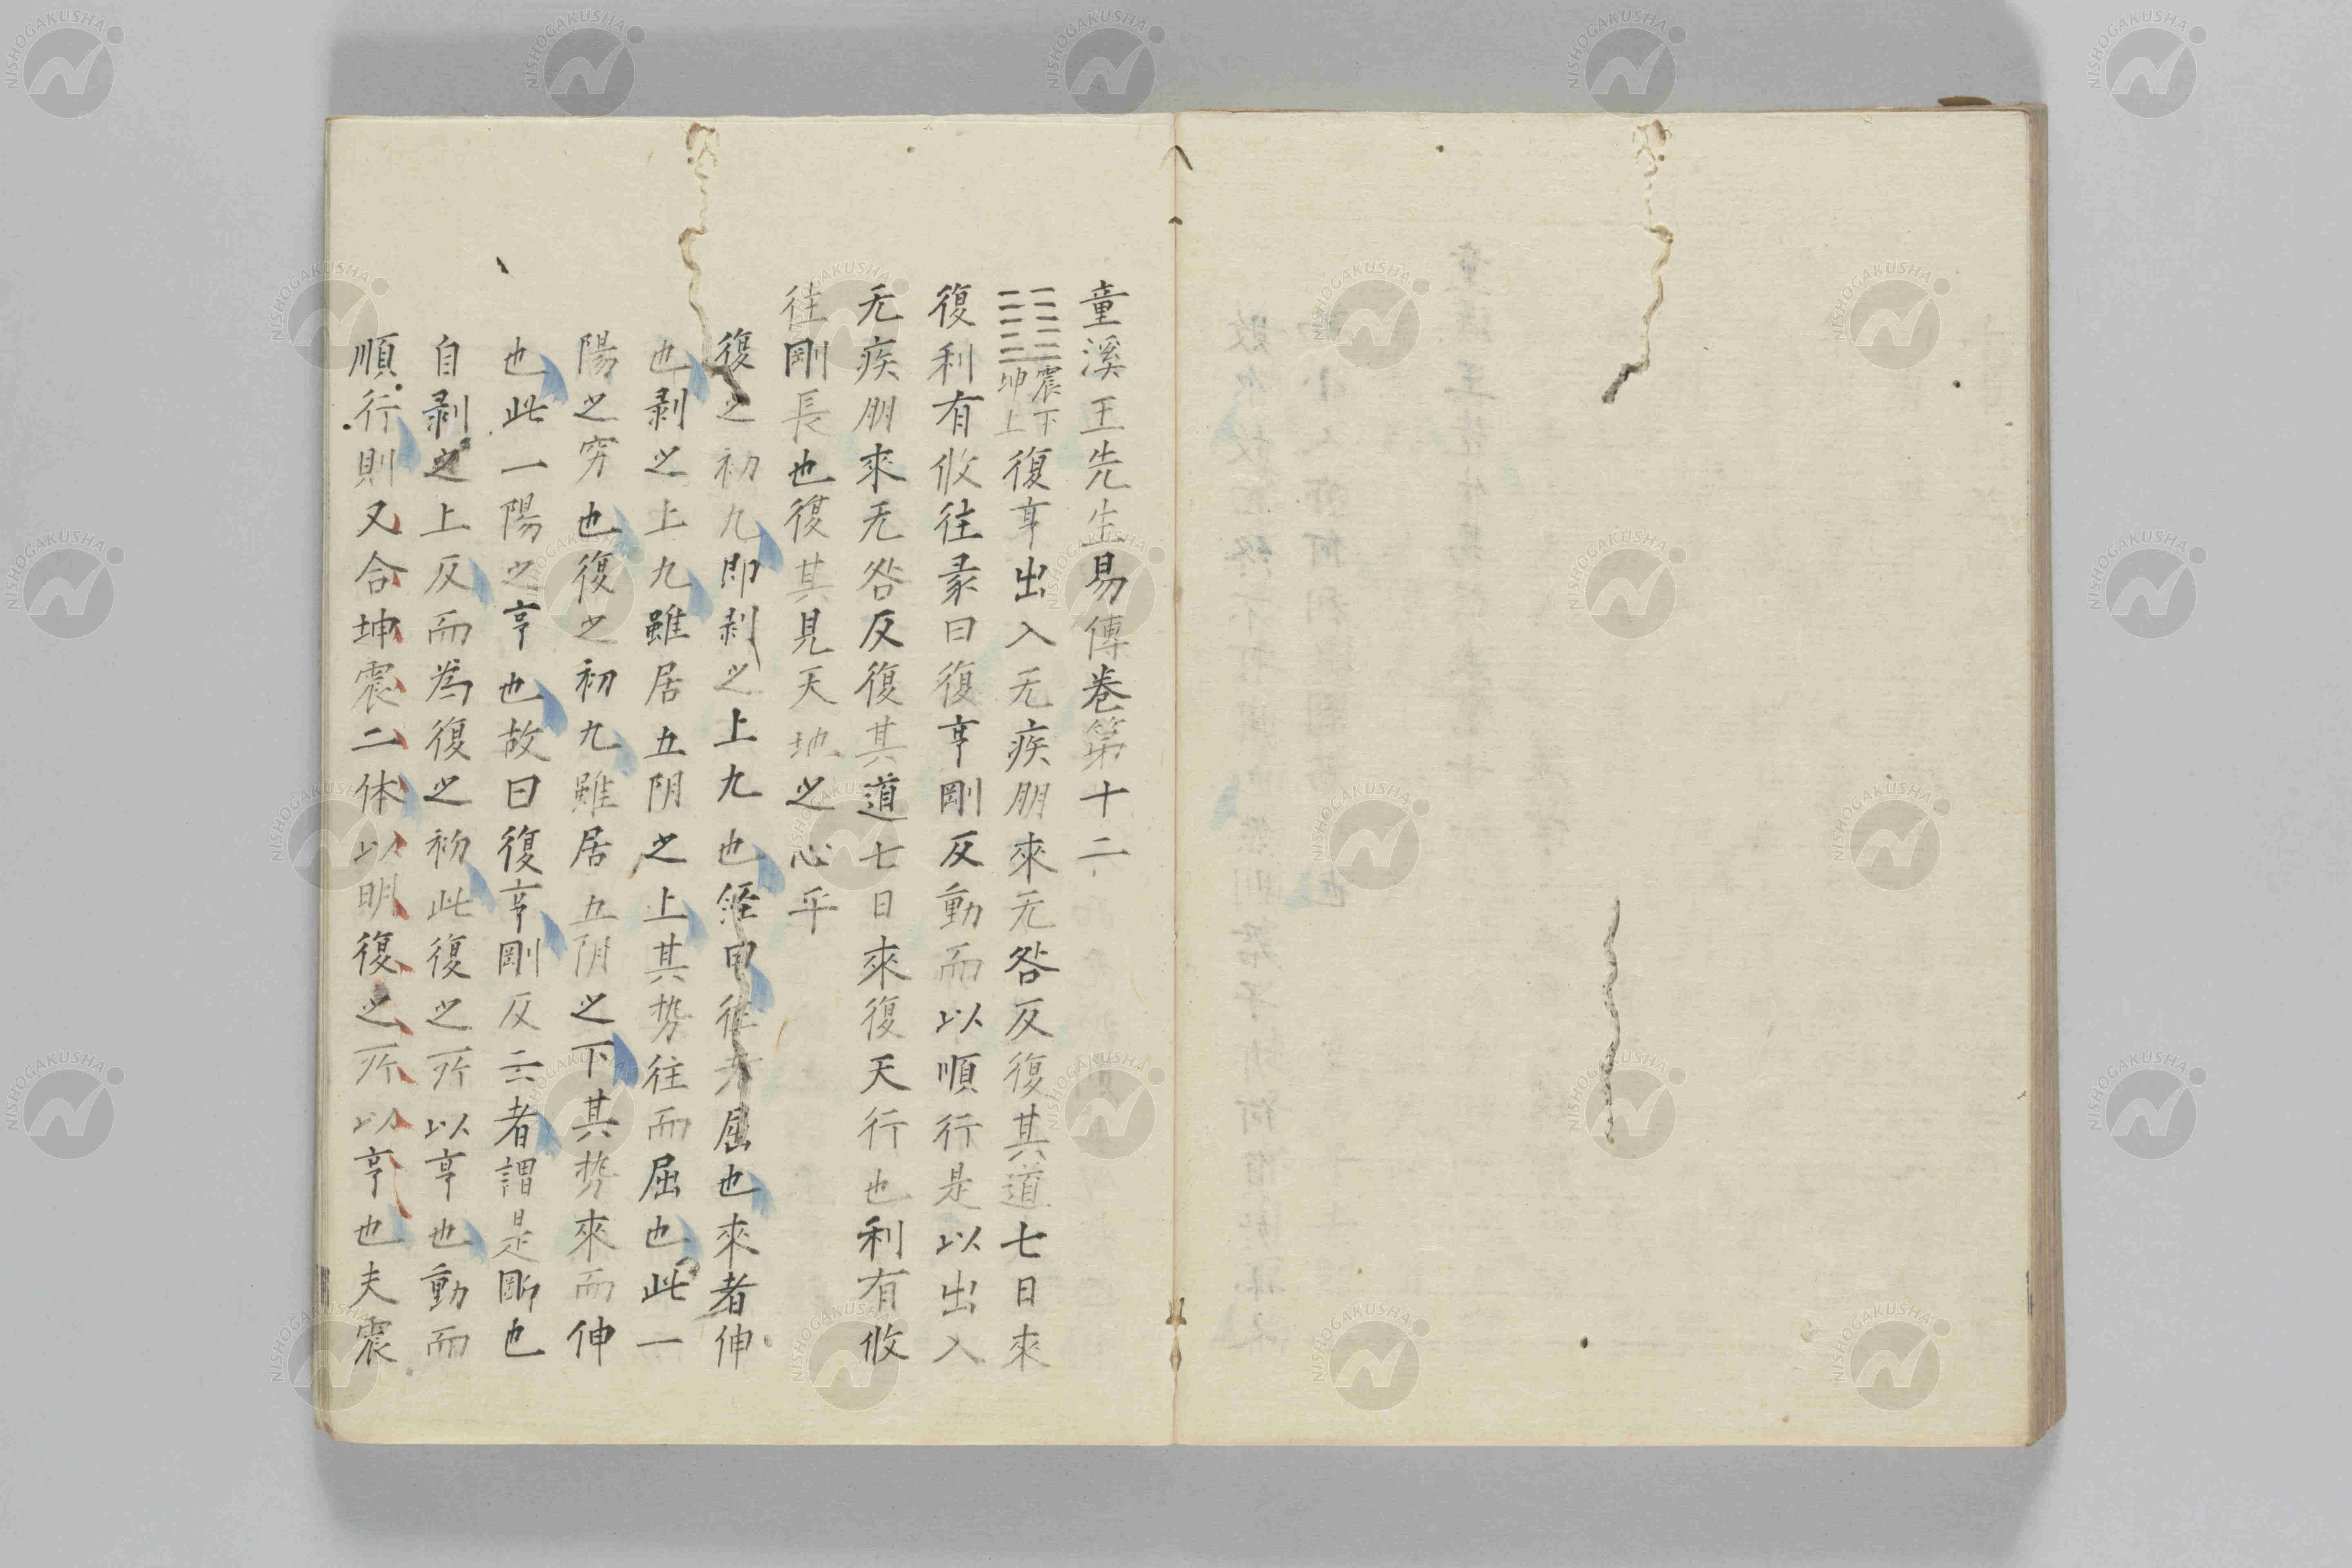 童溪王先生易傳卷第十二
震下坤上復亨出入无疾朋來无咎反復其道七日來
復利有攸往彖曰復亨剛反動而以順行是以出入
无疾朋來无咎反復其道七日來復天行也利有攸
往剛長也復其見天地之心乎
復之初九即剥之上九也經曰往者屈也來者伸
也剥之上九雖居五阴之上其势往而屈也此一
陽之穷也復之初九雖居五阴之下其势來而伸
也此一陽之亨也故曰復亨剛反云者謂是剛也
自剥之上反而為復之初此復之所以亨也動而
順行則又合坤震二体以明復之所以亨也夫震
NISHOGAKUSHA